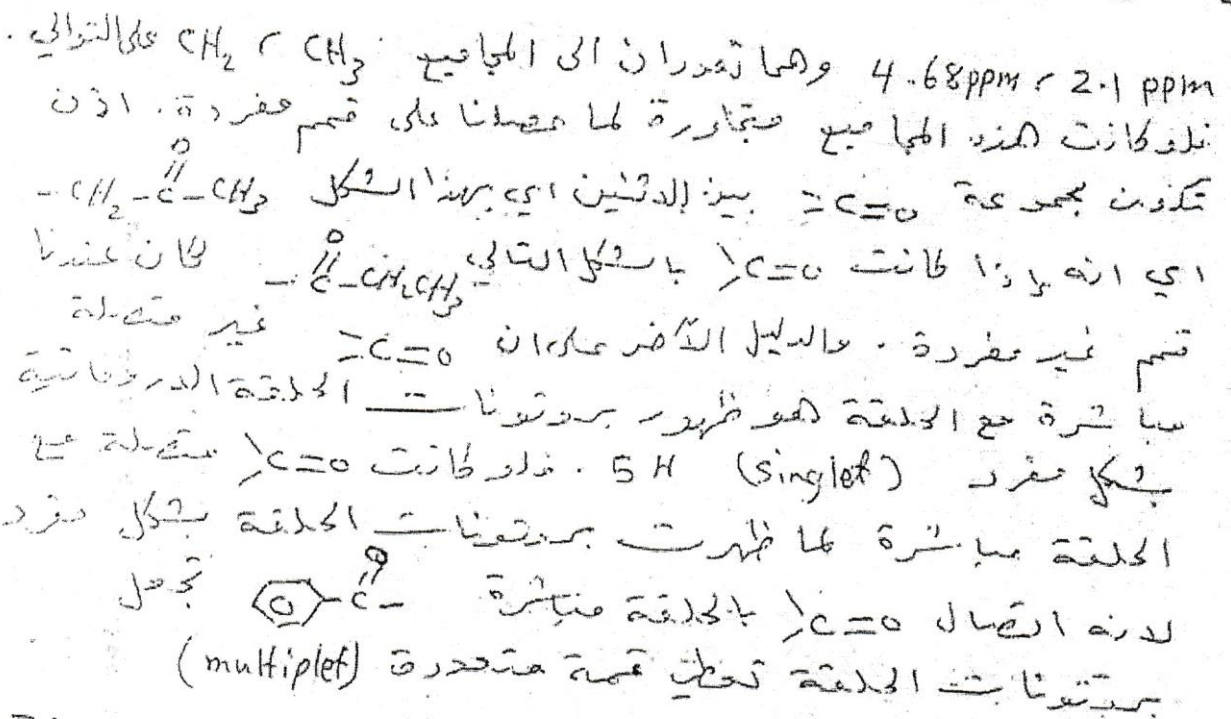 4.68ppm , 2.1 ppm وهما تعوران الى المجاميع CH3 , CH2 على التوالي .
فلو كانت هذه المجاميع متجاورة لما حصلنا على قمم مفردة. اذن
تكون مجموعة C=O بين الاثنين اي بهذا الشكل -CH2-C(=O)-CH3
اي انه إذا كانت C=O بالشكل التالي -C(=O)-CH2CH3 لكان عندنا
قمم غير مفردة . والدليل الآخر على ان C=O غير متصلة
مباشرة مع الحلقة هو ظهور بروتونات الحلقة الاروماتية
بشكل مفرد (singlet) 5H . فلو كانت C=O متصلة مع
الحلقة مباشرة لما ظهرت بروتونات الحلقة بشكل مفرد
لانه اتصال C=O بالحلقة مباشرة -C(=O)- تجعل
بروتونات الحلقة تعطي قمة متعددة (multiplet)